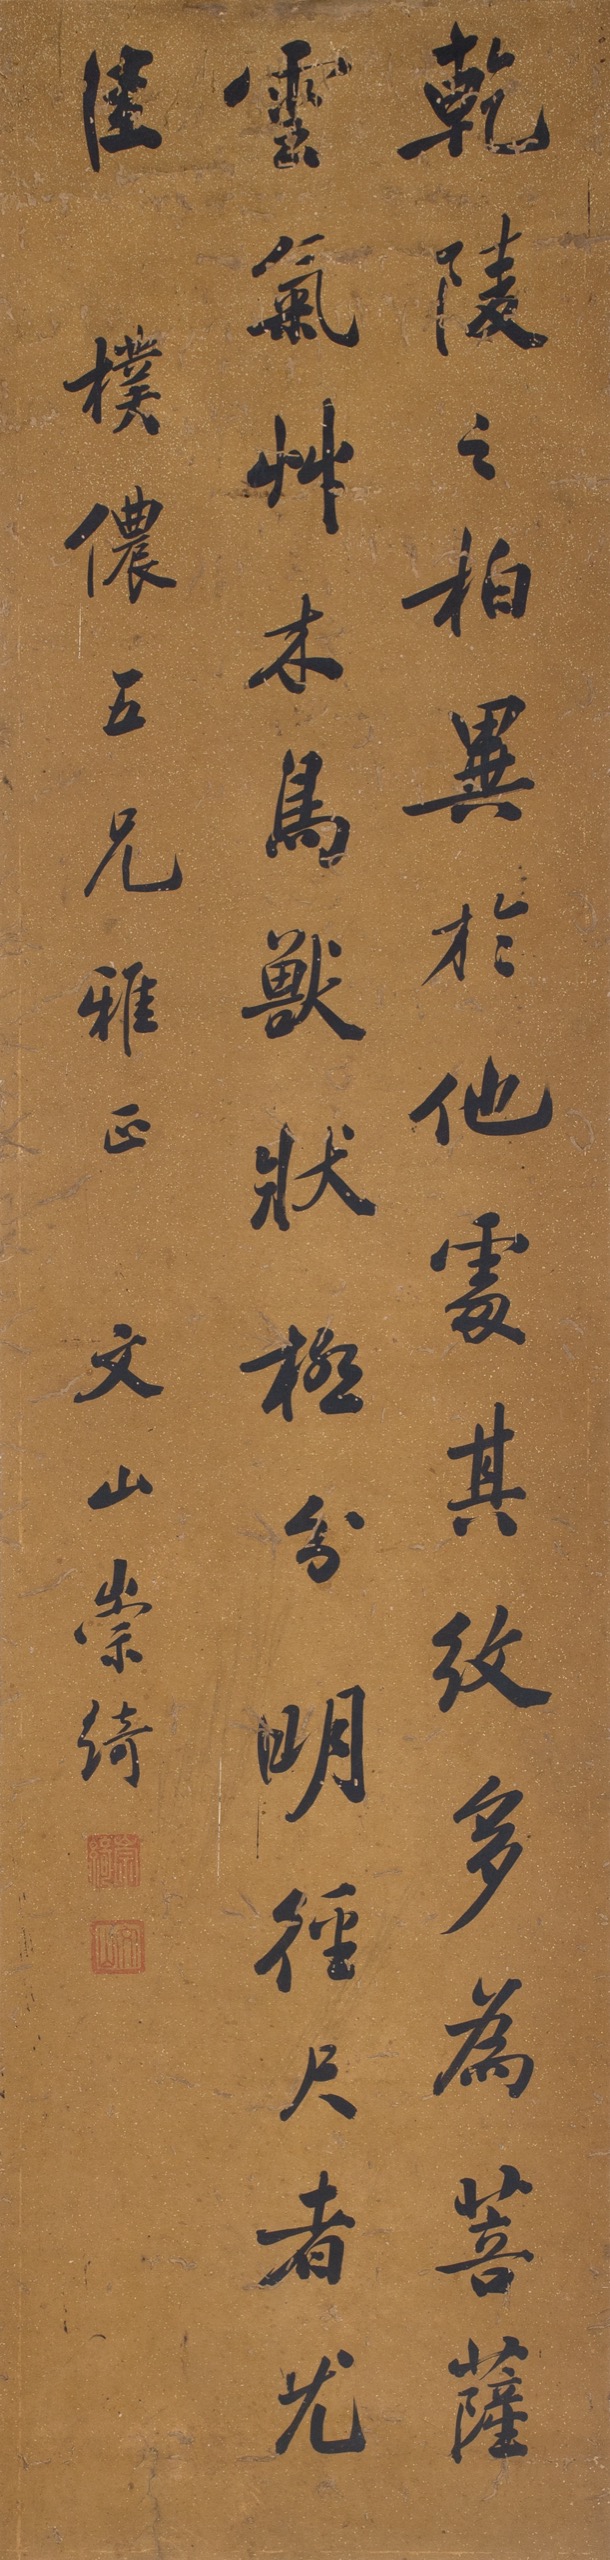 乾陵之柏異於他處其紋多為菩薩
雲氣艸木鳥獸狀極分明徑尺者尤
佳
樸儂五兄雅正 文山崇綺
崇綺
文山